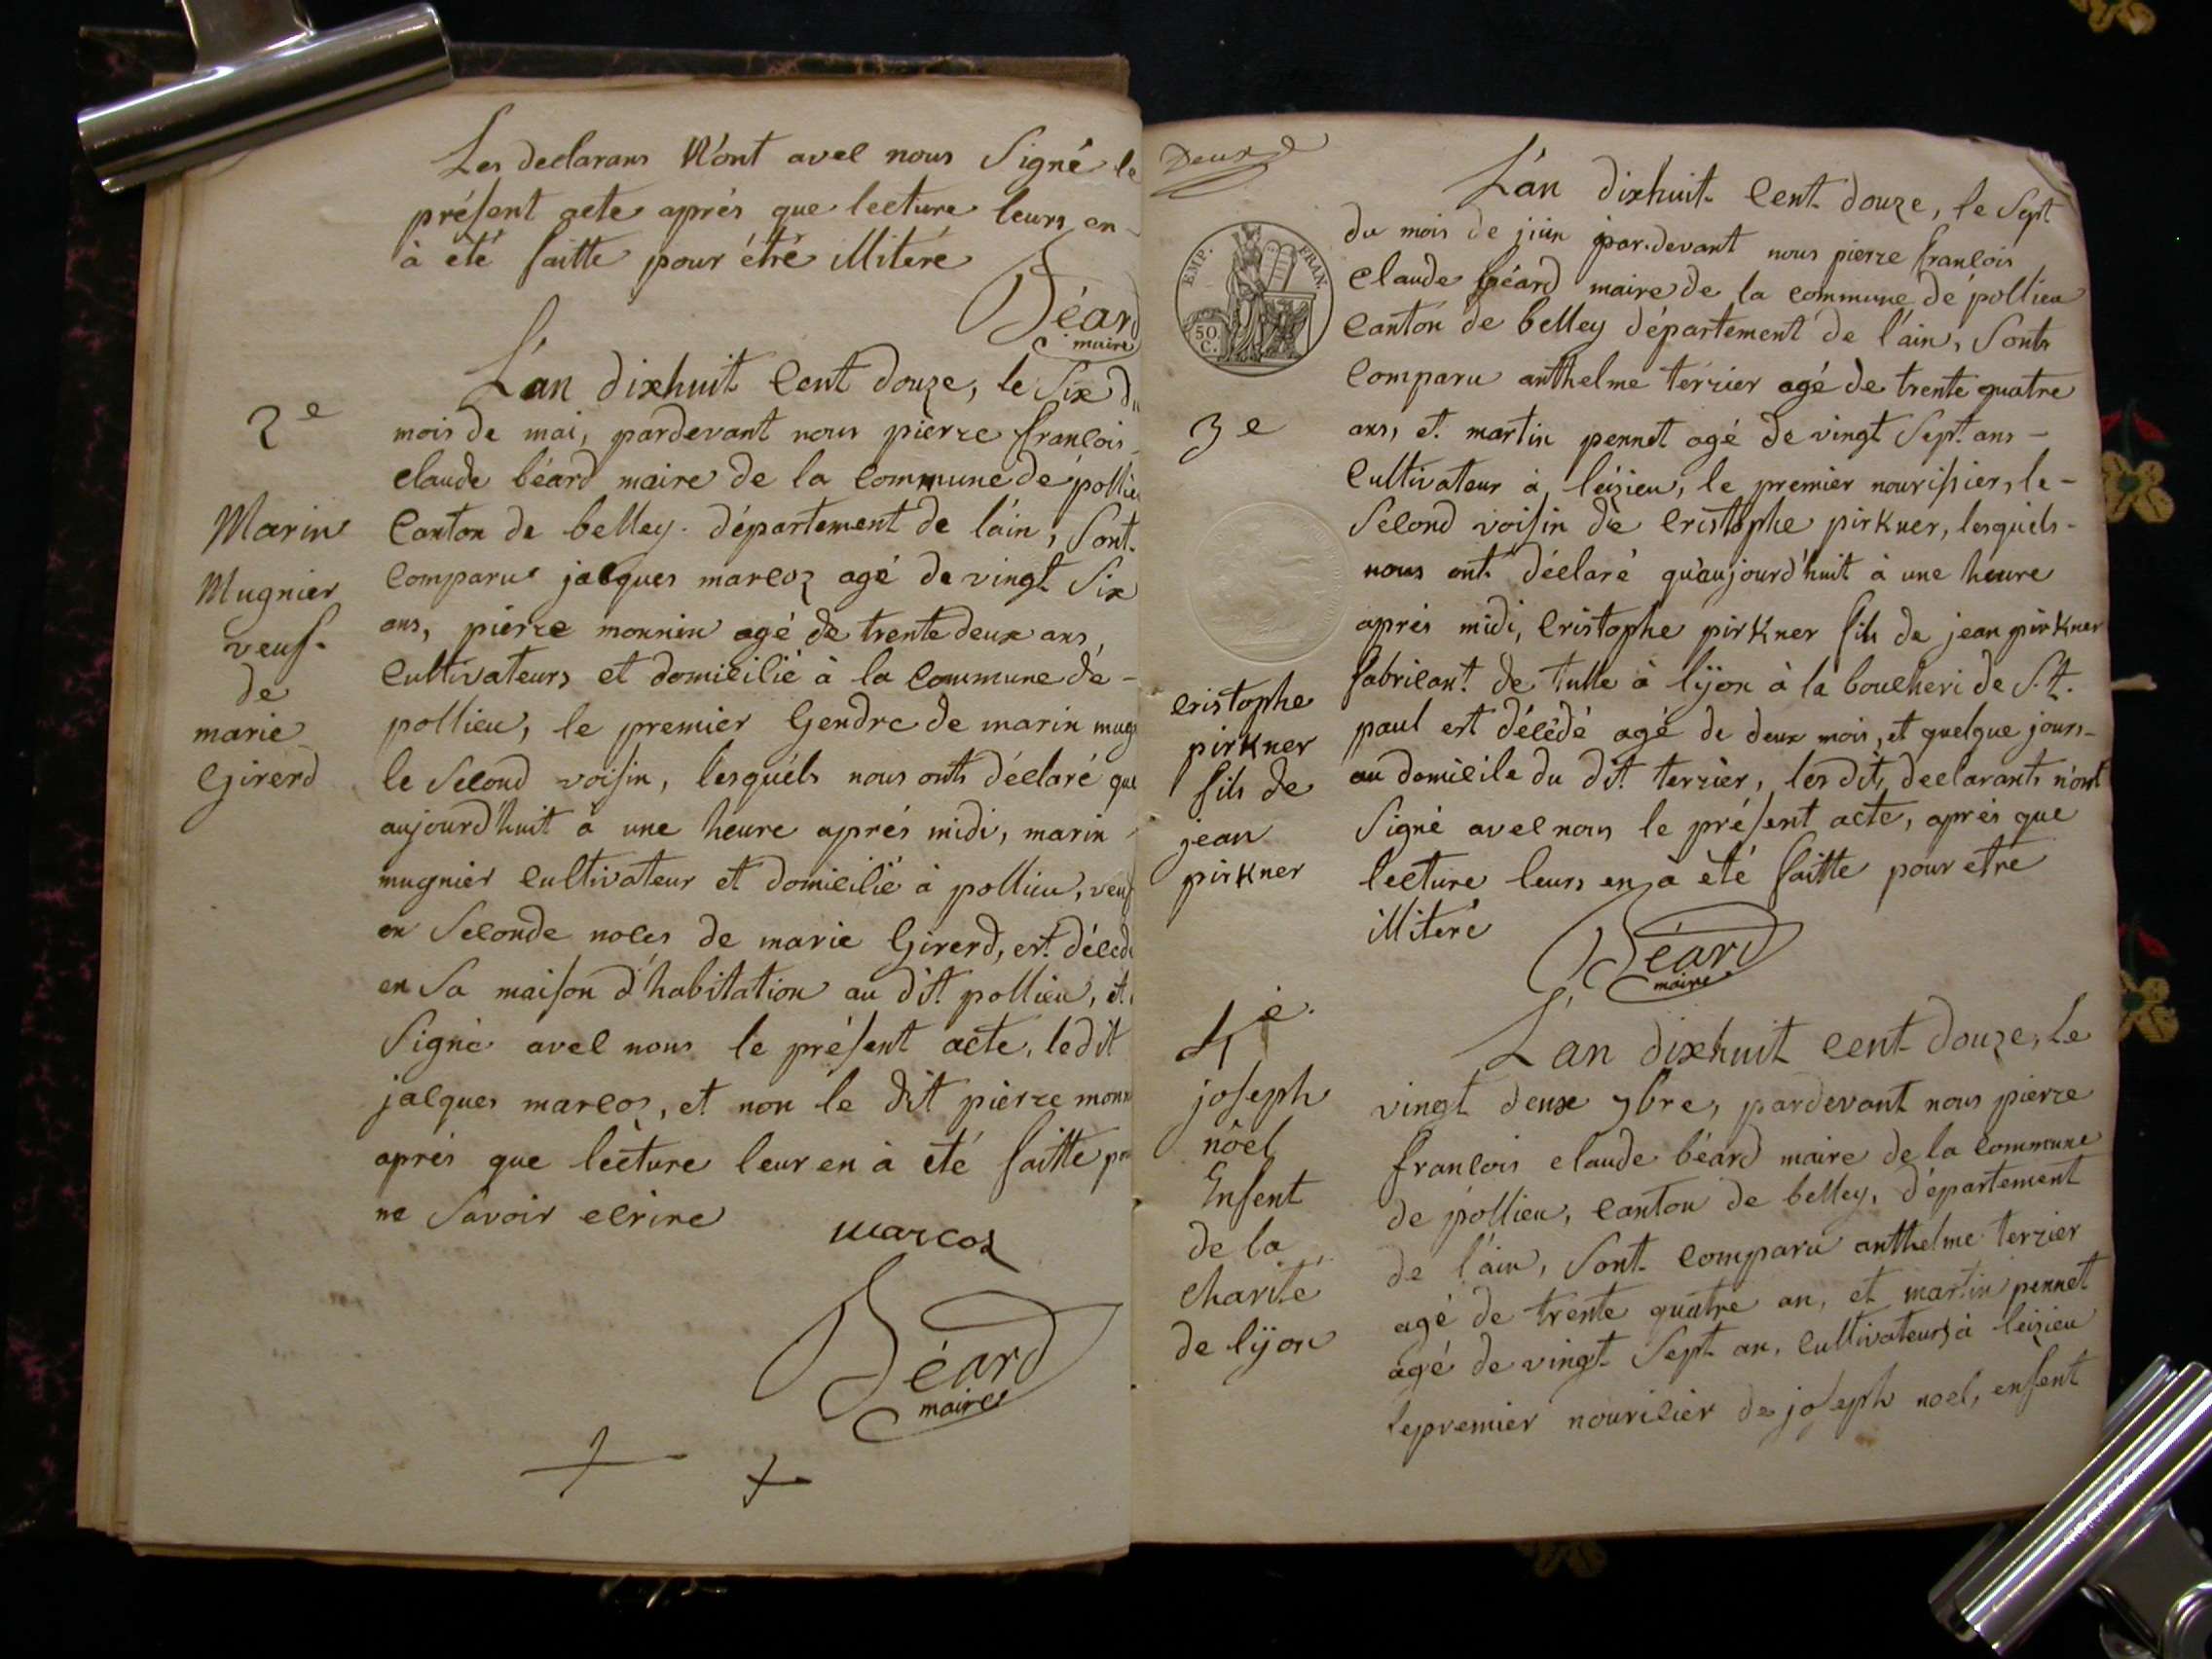 Les declarans N'ont avec nous Signé le
présent acte aprés que lecture leurs en
à été faitte pour étré illiteré
Béard
maire
2e
Marin
Mugnier
veuf
de
marie
Girerd
L'an dixhuit Cent douze, le Six du
mois de mai, pardevant nous pierre françois
claude béard maire de la commune de pollieu
Canton de belley département de l'ain, Sont
Comparus jacques marcoz agé de vingt Six
ans, pierre monnin agé de trente deux ans,
Cultivateurs et domicilié à la Commune de
pollieu, le premier Gendre de marin mug
le Second voisin, lesquéls nous onts déclaré que
aujourd'huit à une heure aprés midi, marin
mugnier Cultivateur et domicilié à pollieu, veuf
en Seconde noces de marie Girerd, est décedé
en Sa maison d'habitation au dit pollieu, et
Signé avec nous le présent acte, ledit
jacques marcoz, et non le dit pierre monn
aprés que lecture leur en à été faitte po
ne Savoir ecrire
marcoz
Béard
maire
Deux
EMP. FRAN.
50
C.
L'an dixhuit Cent douze, le Sept
du mois de juin par devant nous pierre françois
Claude béard maire de la commune de pollieu
Canton de belley département de l'ain, Sonts
Comparu anthelme terrier agé de trente quatre
ans, et martin pennet agé de vingt Sept ans
Cultivateur à léizieu, le premier nourissier, le
Second voisin de Cristophe pirkner, lesquels
nous ont déclaré qu'aujourd'huit à une heure
aprés midi, Cristophe pirkner fils de jean pirkner
fabricant de tulle à lÿon à la boucheri de St.
paul est décédé agé de deux mois, et quelque jours
au domicile du dit terrier, les dits declarants n'ont
Signé avec nous le présent acte, aprés que
lecture leurs en à été faitte pour etré
illiteré
Béard
maire
3e
Cristophe
pirkner
fils de
jean
pirkner
4e.
joseph
nöel
Enfent
de la
Charité
de lÿon
L'an dixhuit cent douze, Le
vingt deux 7bre, pardevant nous pierre
françois claude béard maire de la commune
de pollieu, Canton de belley, département
de l'ain, Sont Comparu anthelme terrier
agé de trente quatre an, et martin pennet
agé de vingt Sept an, Cultivateurs à leizieu
le premier nouricier de joseph noel, enfent